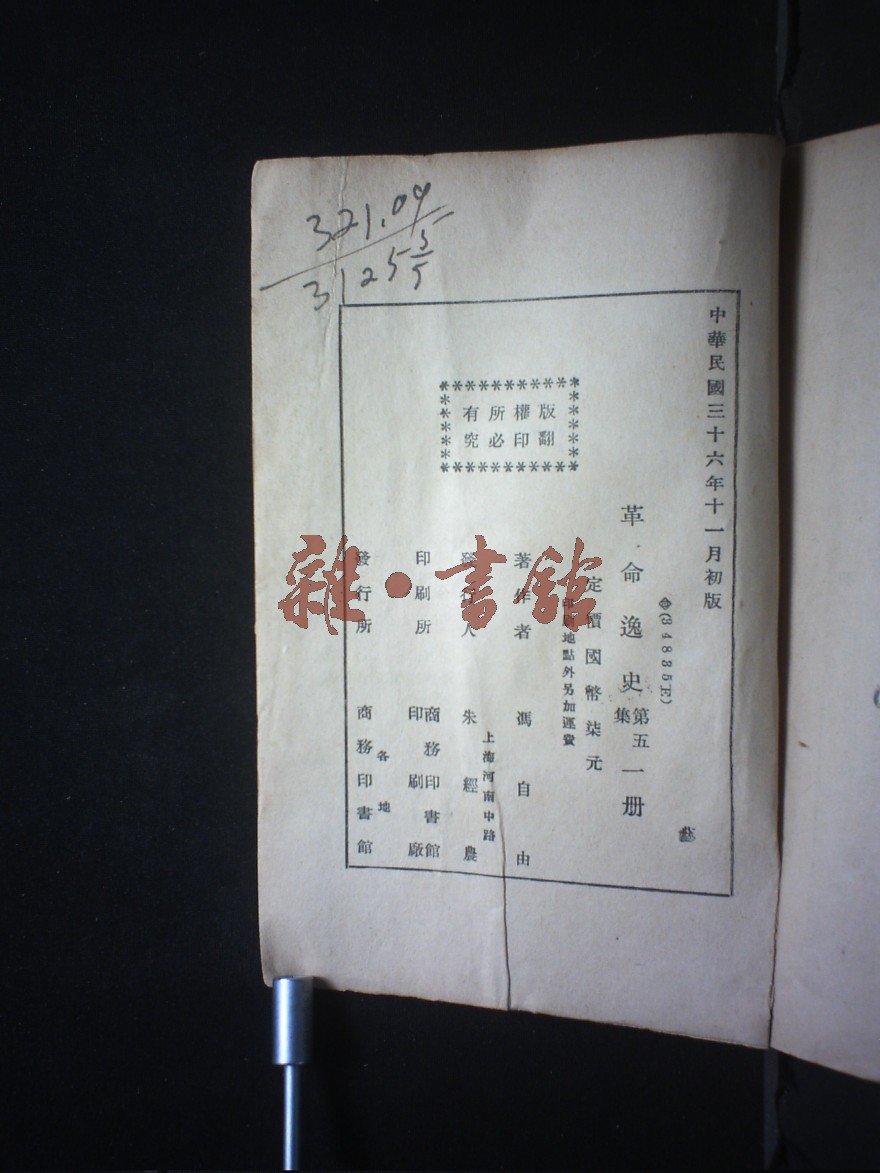 321.09
3125 5/5
中華民國三十六年十一月初版
(34835E)
革命逸史第五集一册
定價國幣柒元
印刷地點外另加運費
版權所有
翻印必究
著作者 馮自由
上海河南中路
發行人 朱經農
印刷所 商務印書館印刷廠
各地
發行所 商務印書館
雜·書館